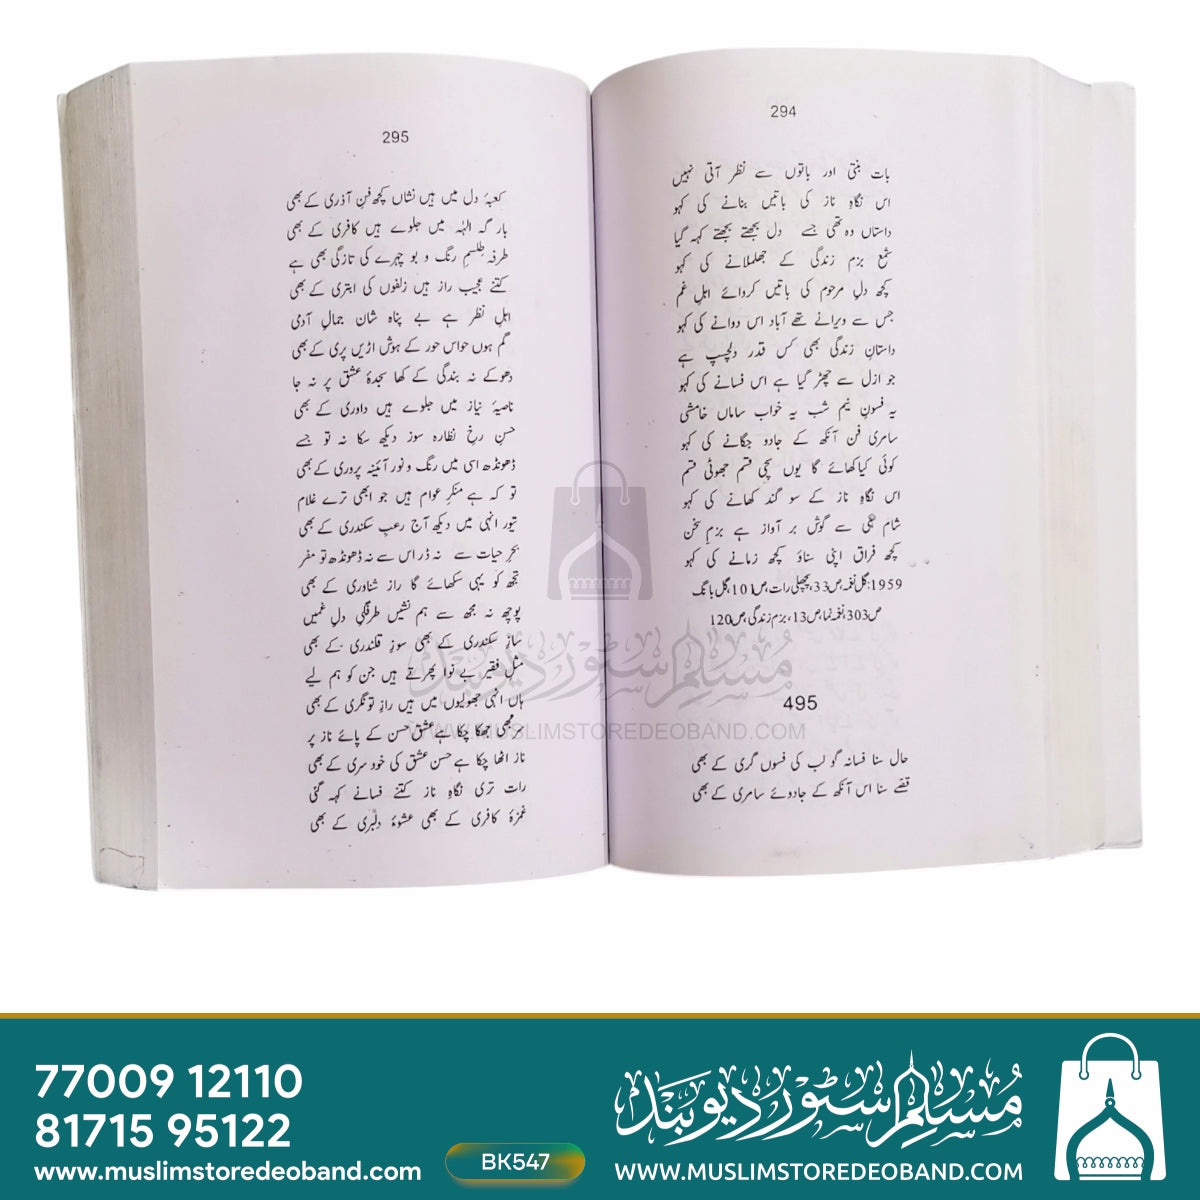 294
بات بنتی اور باتوں سے نظر آتی نہیں
اس نگاہِ ناز کی باتیں بنانے کی کہو
داستاں وہ تھی جسے دل بجھتے بجھتے کہہ گیا
شمعِ بزمِ زندگی کے جھلملانے کی کہو
کچھ دلِ مرحوم کی باتیں کرو اے اہلِ غم
جس سے ویرانے تھے آباد اس دوانے کی کہو
داستانِ زندگی بھی کس قدر دلچسپ ہے
جو ازل سے چھڑ گیا ہے اس فسانے کی کہو
یہ فسونِ نیم شب یہ خواب ساماں خامشی
سامری فن آنکھ کے جادو جگانے کی کہو
کوئی کیا کھائے گا یوں سچی قسم جھوٹی قسم
اس نگاہِ ناز کے سوگند کھانے کی کہو
شام ہی سے گوش بر آواز ہے بزمِ سخن
کچھ فراق اپنی سناؤ کچھ زمانے کی کہو
1959:گل نغمہ،ص33،پچھلی رات،ص101،گلبانگ
ص303،نغمہ نما،ص13،بزم زندگی،ص120
495
حال سنا فسانہ گو لب کی فسوں گری کے بھی
قصے سنا اس آنکھ کے جادوئے سامری کے بھی
295
کعبۂ دل میں ہیں نشاں کچھ فنِ آذری کے بھی
بارگہِ الٰہ میں جلوے ہیں کافری کے بھی
طرفہ طلسمِ رنگ و بو چہرے کی تازگی بھی ہے
کتنے عجیب راز ہیں زلفوں کی ابتری کے بھی
اہلِ نظر ہے بے پناہ شانِ جمالِ آدمی
گم ہوں حواس حور کے ہوش اڑیں پری کے بھی
دھوکے نہ بندگی کے کھا سجدۂ عشق پر نہ جا
ناصیۂ نیاز میں جلوے ہیں داوری کے بھی
حسنِ رخِ نظارہ سوز دیکھ سکا نہ تو جسے
ڈھونڈھ اسی میں رنگ و نور آئینہ پروری کے بھی
تو کہ ہے منکرِ عوام ہیں جو ابھی ترے غلام
تیور انہی میں دیکھ آج رعبِ سکندری کے بھی
بحرِ حیات سے نہ ڈر اس سے نہ ڈھونڈھ تو مفر
تجھ کو یہی سکھائے گا راز شناوری کے بھی
پوچھ نہ مجھ سے ہم نشیں طرفگیِ دلِ غمیں
سازِ سکندری کے بھی سوزِ قلندری کے بھی
مثلِ فقیرِ بے نوا پھرتے ہیں جن کو ہم لیے
ہاں انہی جھولیوں میں ہیں رازِ تونگری کے بھی
سر بھی جھکا چکا ہے عشق حسن کے پائے ناز پر
ناز اٹھا چکا ہے حسن عشق کی خود سری کے بھی
رات تری نگاہِ ناز کتنے فسانے کہہ گئی
غمزۂ کافری کے بھی عشوۂ دلبری کے بھی
مسلم سٹور دیوبند
WWW.MUSLIMSTOREDEOBAND.COM
77009 12110
81715 95122
www.muslimstoredeoband.com
BK547
مسلم سٹور دیوبند
WWW.MUSLIMSTOREDEOBAND.COM